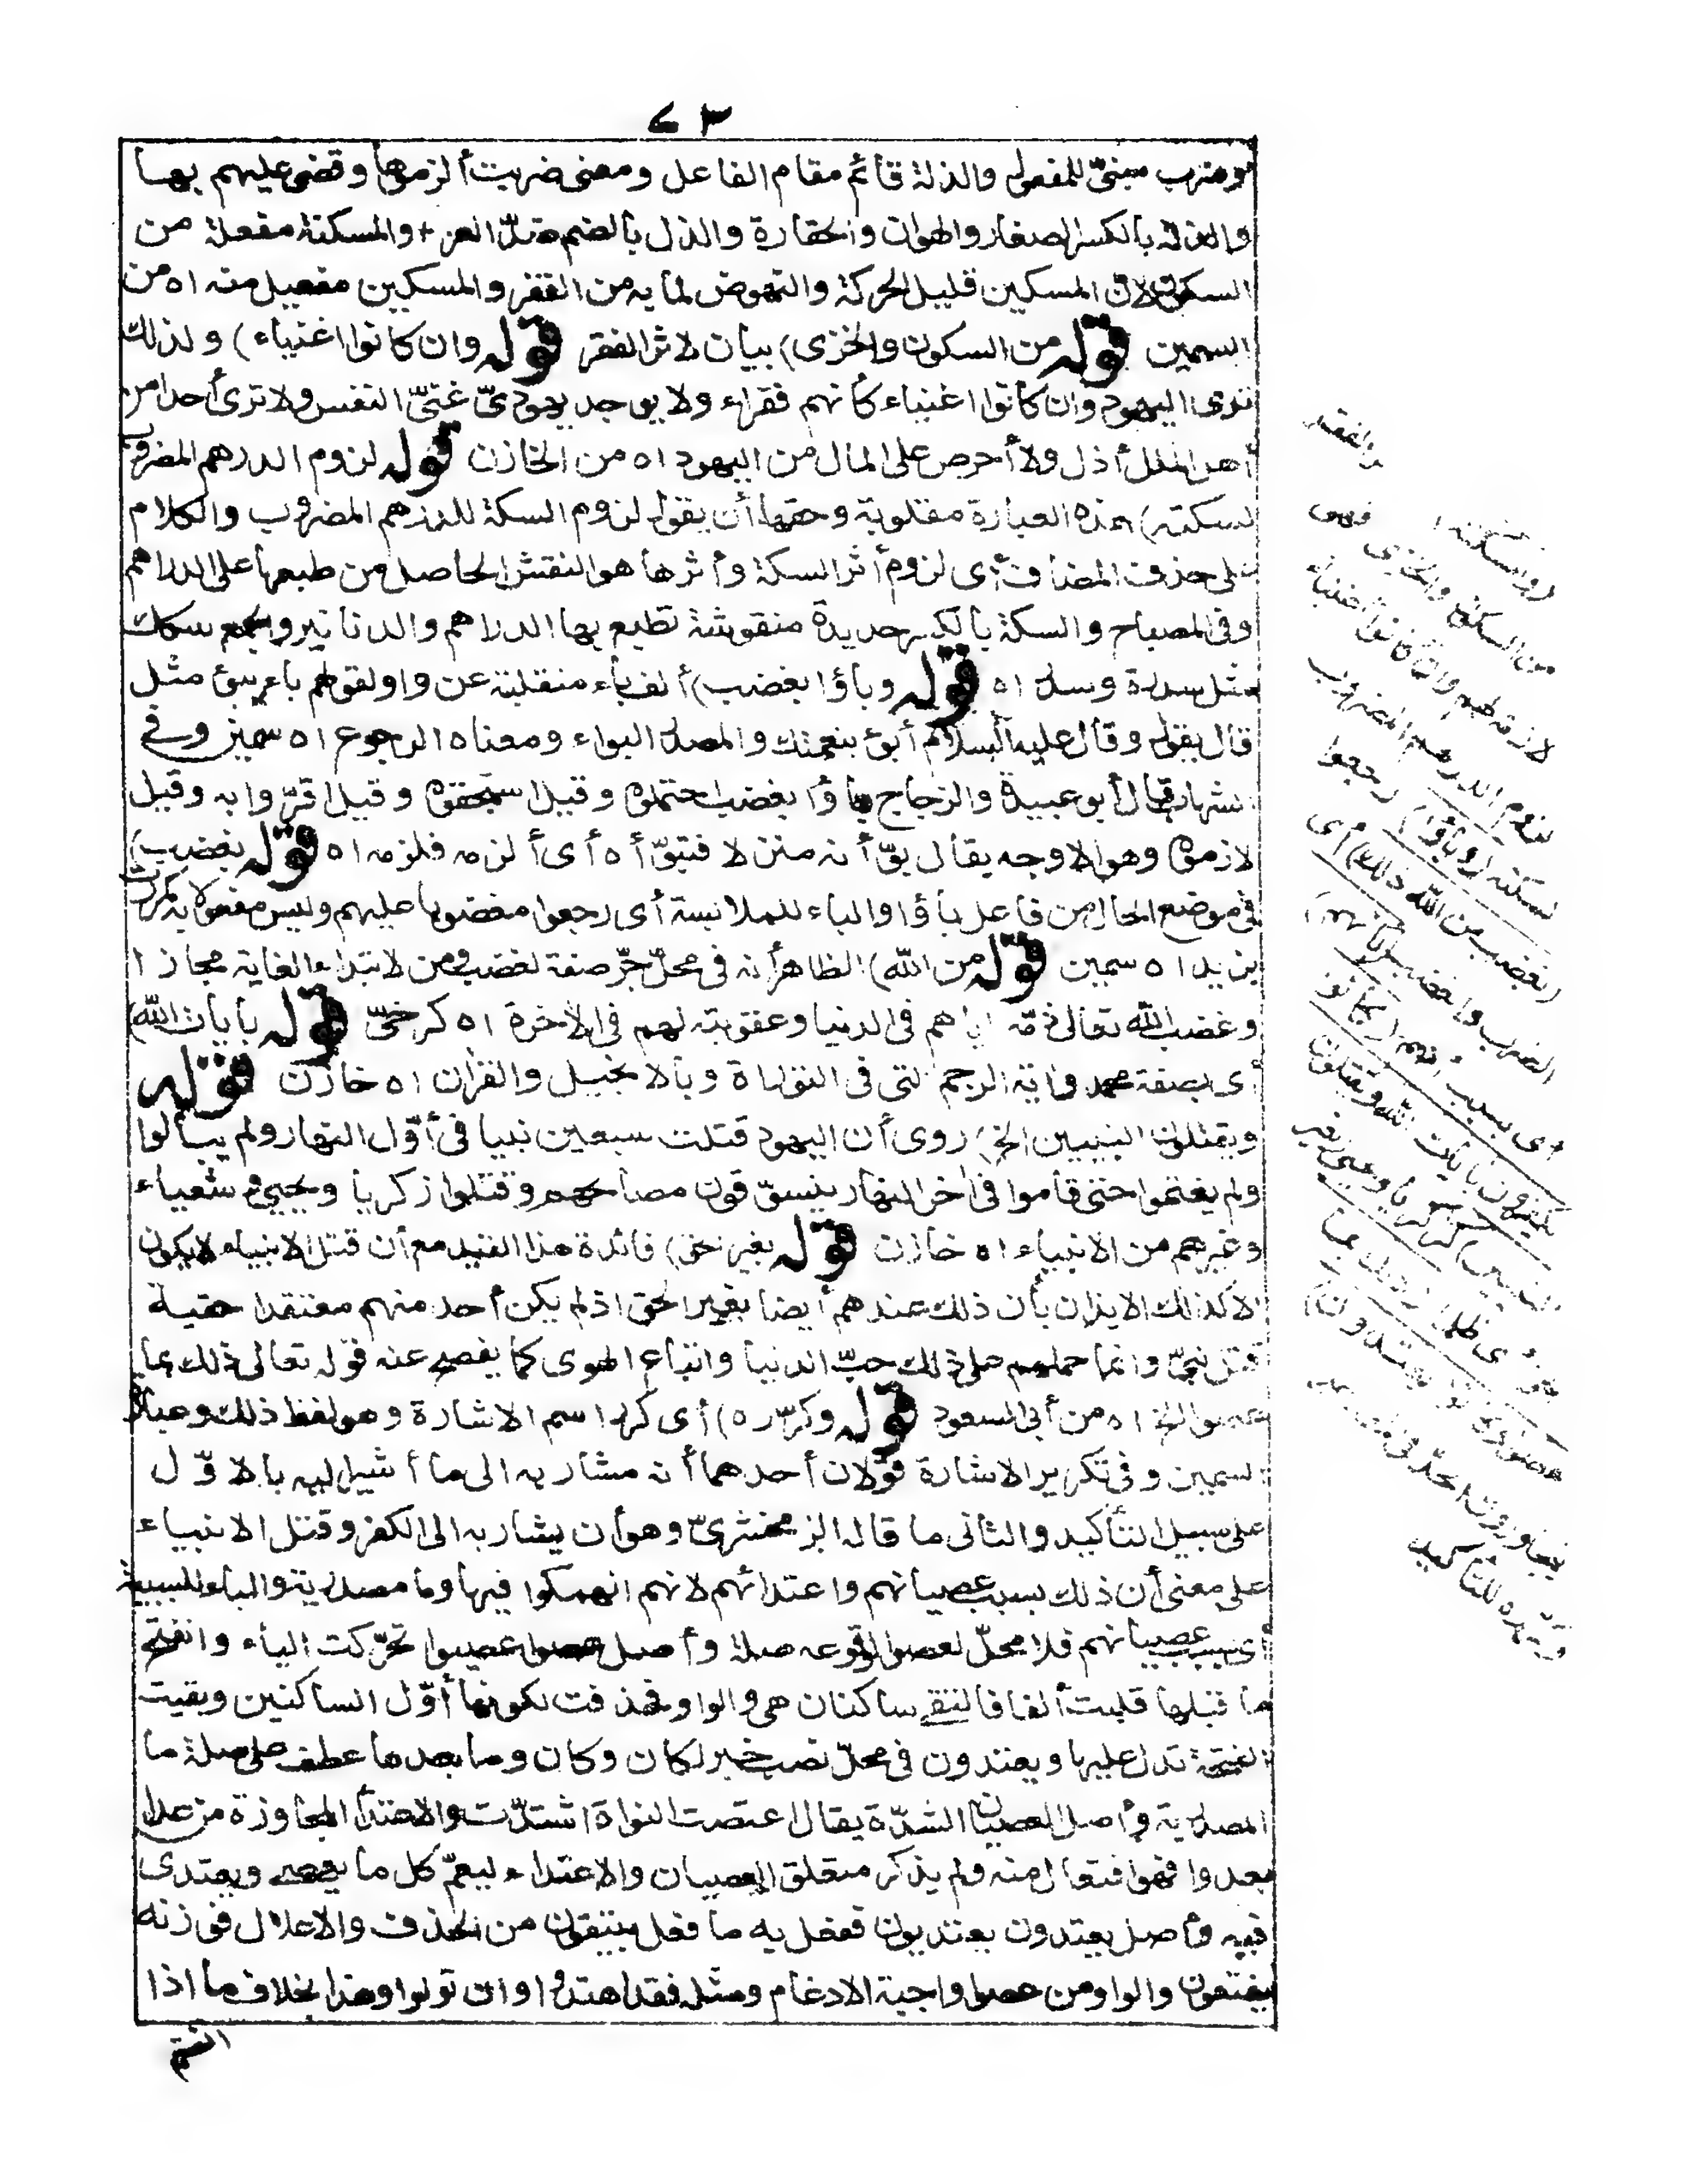 ٧٣
وضرب مبنيّ للمفعول والذلة قائم مقام الفاعل ومعنى ضربت ألزموها وقضى عليهم بها
والذلة بالكسر الصغار والهوان والحقارة والذل بالضم ضدّ العز + والمسكنة مفعلة من
السكون لان المسكين قليل الحركة والنهوض لما به من الفقر والمسكين مفعيل منه اه من
السمين قوله من السكون والخزى) بيان لاثر الفقر قوله وان كانوا اغنياء) ولذلك
ترى اليهود وان كانوا اغنياء كأنهم فقراء ولا يوجد يهودىّ غنىّ النفس ولا ترى أحدا من
أهل الملل أذل ولا أحرص على المال من اليهود اه من الخازن قوله لزوم الدرهم المضروب
لسكته) هذه العبارة مقلوبة وحقها أن يقول لزوم السكة للدرهم المضروب والكلام
على حذف المضاف أى لزوم أثر السكة وأثرها هو النقش الحاصل من طبعها على الدراهم
وفى المصباح والسكة بالكسر حديدة منقوشة تطبع بها الدراهم والدنانير والجمع سكك
مثل سدرة وسدر اه قوله وباؤا بغضب) ألف باء منقلبة عن واو لقولهم باء يبوء مثل
قال يقول وقال عليه السلام أبوء بنعمتك والمصدر البواء ومعناه الرجوع اه سمين وفى
الشهاب قال أبو عبيدة والزجاج باؤا بغضب احتملوه وقيل استحقوه وقيل اقرّوا به وقيل
لازموه وهو الاوجه يقال بوّأته منزلا فتبوّأه أى ألزمه فلزمه اه قوله بغضب)
فى موضع الحال من فاعل باؤا والباء للملابسة أى رجعوا مغضوبا عليهم وليس مفعولا به كمررت
بزيد اه سمين قوله من الله) الظاهر أنه فى محلّ جرّ صفة لغضب ومن لابتداء الغاية مجازا
وغضب الله تعالى ذمّه اياهم فى الدنيا وعقوبته لهم فى الآخرة اه كرخىّ قوله بآيات الله)
أى بصفة محمد وآية الرجم التى فى التوراة وبالانجيل والقرآن اه خازن قوله
ويقتلون النبيين الخ) روى أن اليهود قتلت سبعين نبيا فى أوّل النهار ولم يبالوا
ولم يغتموا حتى قاموا فى آخر النهار يتسوّقون مصالحهم وقتلوا زكريا ويحيى وشعياء
وغيرهم من الانبياء اه خازن قوله بغير حق) فائدة هذا القيد مع أن قتل الانبياء لا يكون
الا كذلك الايذان بأن ذلك عندهم أيضا بغير الحق اذ لم يكن أحد منهم معتقدا حقية
قتل نبىّ وانما حملهم على ذلك حبّ الدنيا واتباع الهوى كما يفصح عنه قوله تعالى ذلك بما
عصوا الخ اه من أبى السعود قوله وكرّره) أى كرر اسم الاشارة وهو لفظ ذلك وعبارة
السمين وفى تكرير الاشارة قولان أحدهما أنه مشار به الى ما أشير اليه بالاوّل
على سبيل التأكيد والثانى ما قاله الزمخشرىّ وهو أن يشار به الى الكفر وقتل الانبياء
على معنى أن ذلك بسبب عصيانهم واعتدائهم لانهم انهمكوا فيها وما مصدرية والباء للسببية
أى بسبب عصيانهم فلا محلّ لعصوا لوقوعه صلة وأصل عصوا عصيوا تحرّكت الياء وانفتح
ما قبلها قلبت ألفا فالتقى ساكنان هى والواو فحذفت لكونها أوّل الساكنين وبقيت
الفتحة تدل عليها ويعتدون فى محلّ نصب خبر لكان وكان وما بعدها عطف على صلة ما
المصدرية وأصل العصيان الشدّة يقال اعتصت النواة اشتدّت والاعتداء المجاوزة من عدا
يعدو فهو افتعال منه ولم يذكر متعلق العصيان والاعتداء ليعمّ كل ما يعصى ويعتدى
فيه وأصل يعتدون يعتديون ففعل به ما فعل بيتقون من الحذف والاعلال فوزنه
يفتعون والواو من عصوا واجبة الادغام ومثله فقد اهتدوا وان تولوا وهذا بخلاف ما اذا
انضم
والفقر
(والمسكنة)
من السكون والخزى فهى
لازمة لهم وان كانوا اغنياء
لزوم الدرهم المضروب
لسكته (وباؤا) رجعوا
(بغضب من الله ذلك) أى
الضرب والغضب (بأنهم)
أى بسبب أنهم (كانوا
يكفرون بآيات الله ويقتلون
النبيين) كزكريا ويحيى (بغير
حق) أى ظلما (ذلك بما
عصوا وكانوا يعتدون)
يتجاوزون الحدّ فى
وكرره للتأكيد